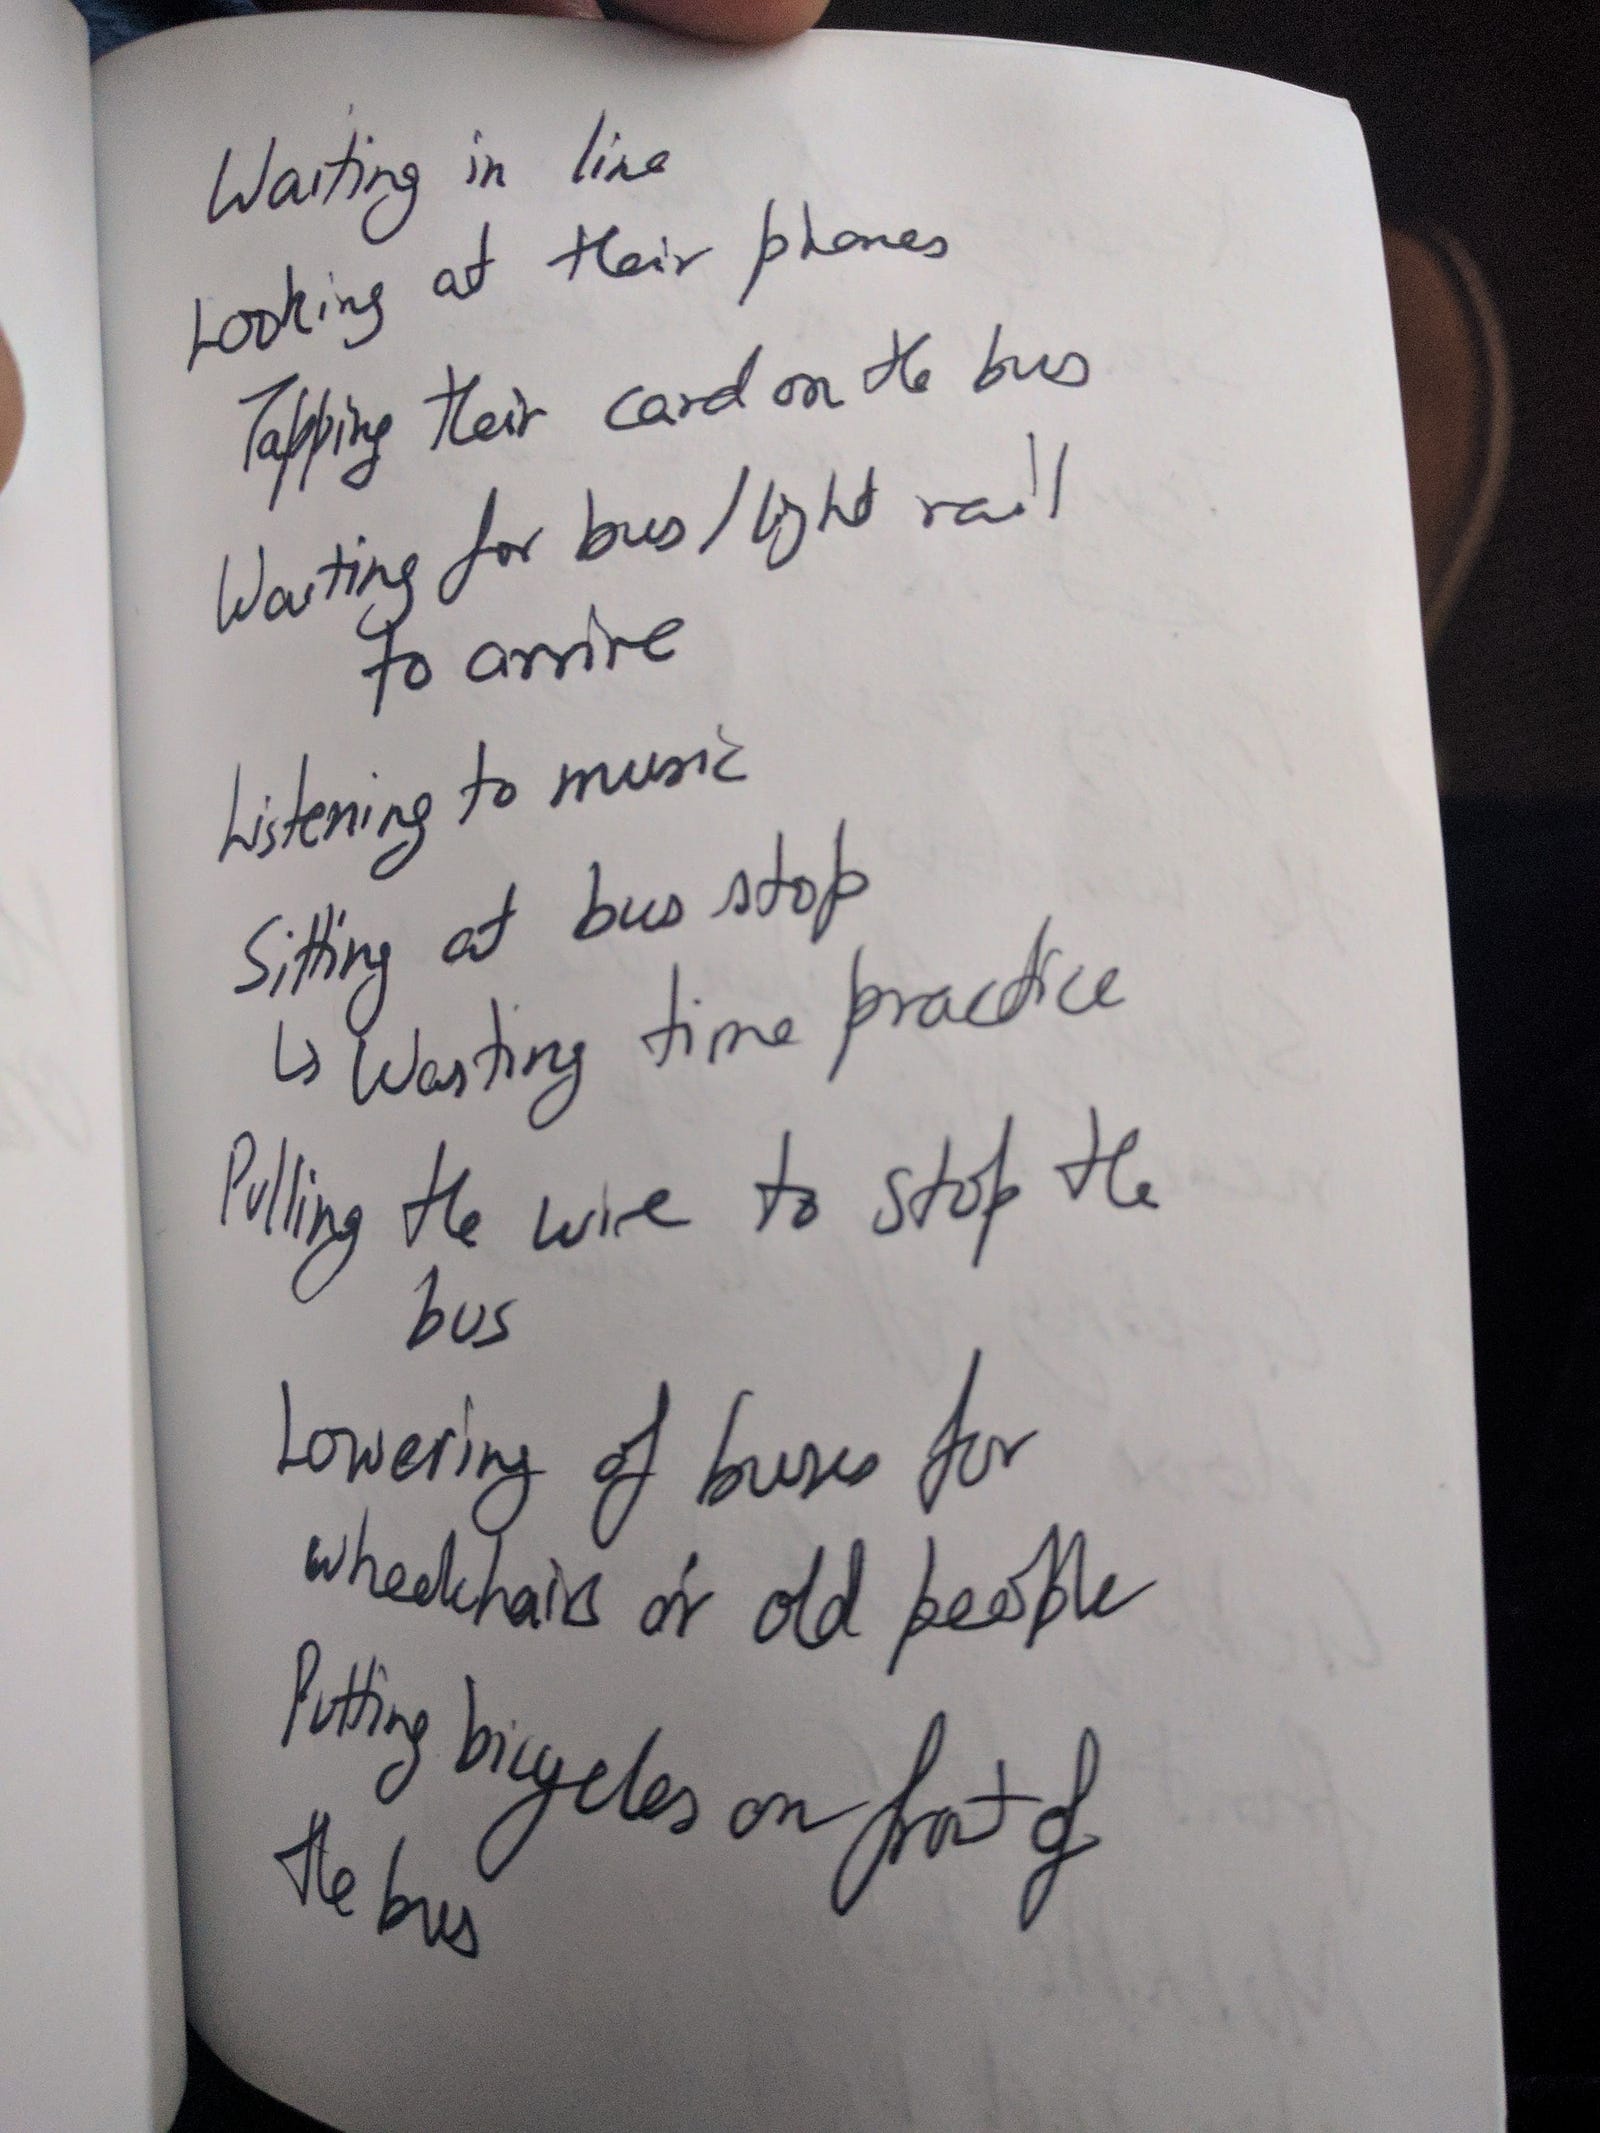 Waiting in line
Looking at their phones
Tapping their card on the bus
Waiting for bus/light rail
to arrive
Listening to music
Sitting at bus stop
↳ Wasting time practice
Pulling the wire to stop the
bus
Lowering of buses for
wheelchairs or old people
Putting bicycles on front of
the bus